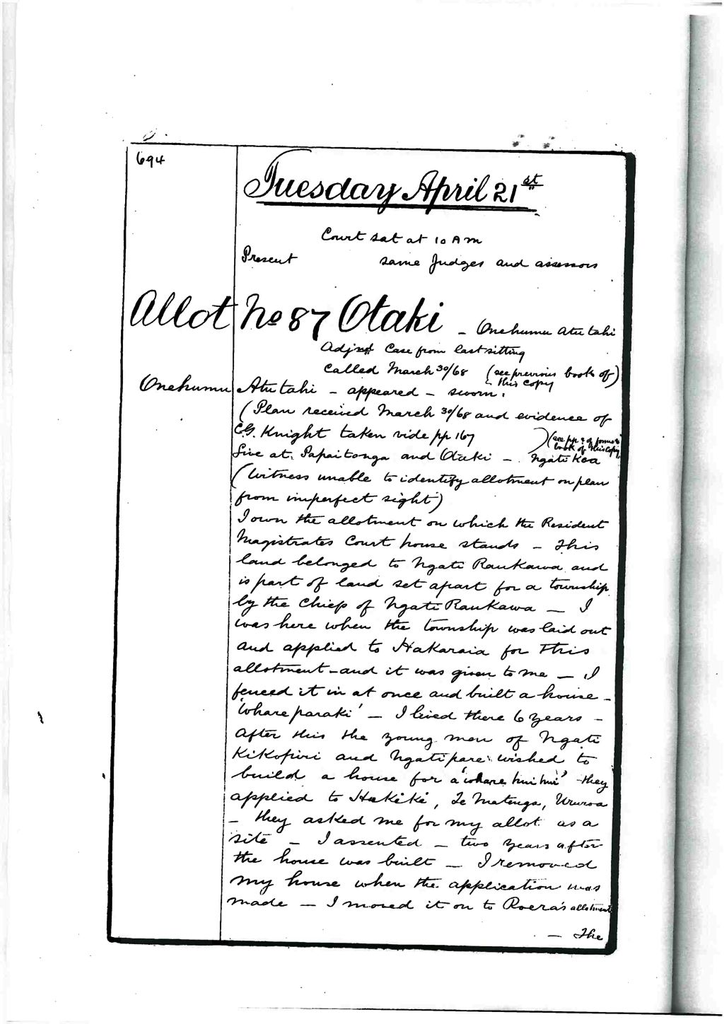 694
Tuesday April 21st
Court sat at 10 A m
Present same Judges and assessors
Allot No 87 Otaki - Onehumu Atutahi
Adjrd Case from last sitting
Called March 30/68 (see previous book of)
- this copy
Onehumu Atutahi - appeared - sworn.
(Plan received March 30/68 and evidence of
E.G. Knight taken vide pp 167 ) (see pp of former
book of this Copy
Live at Papaitonga and Otaki - Ngati Koa
(Witness unable to identify allotment on plan
from imperfect sight)
I own the allotment on which the Resident
Magistrates Court house stands - This
land belonged to Ngati Raukawa and
is part of land set apart for a township
by the Chiefs of Ngati Raukawa - I
was here when the township was laid out
and applied to Hakaraia for this
allotment - and it was given to me - I
fenced it in at once and built a house -
'whare paraki' - I lived there 6 years -
After this the young men of Ngati
Kikopiri and Ngatipare wished to
build a house for a 'whare hui hui' they
applied to Hakeke, Te Matenga, Ururoa
- they asked me for my allot. as a
site - I assented - two years after
the house was built - I removed
my house when the application was
made - I moved it on to Roera's allotment
- The